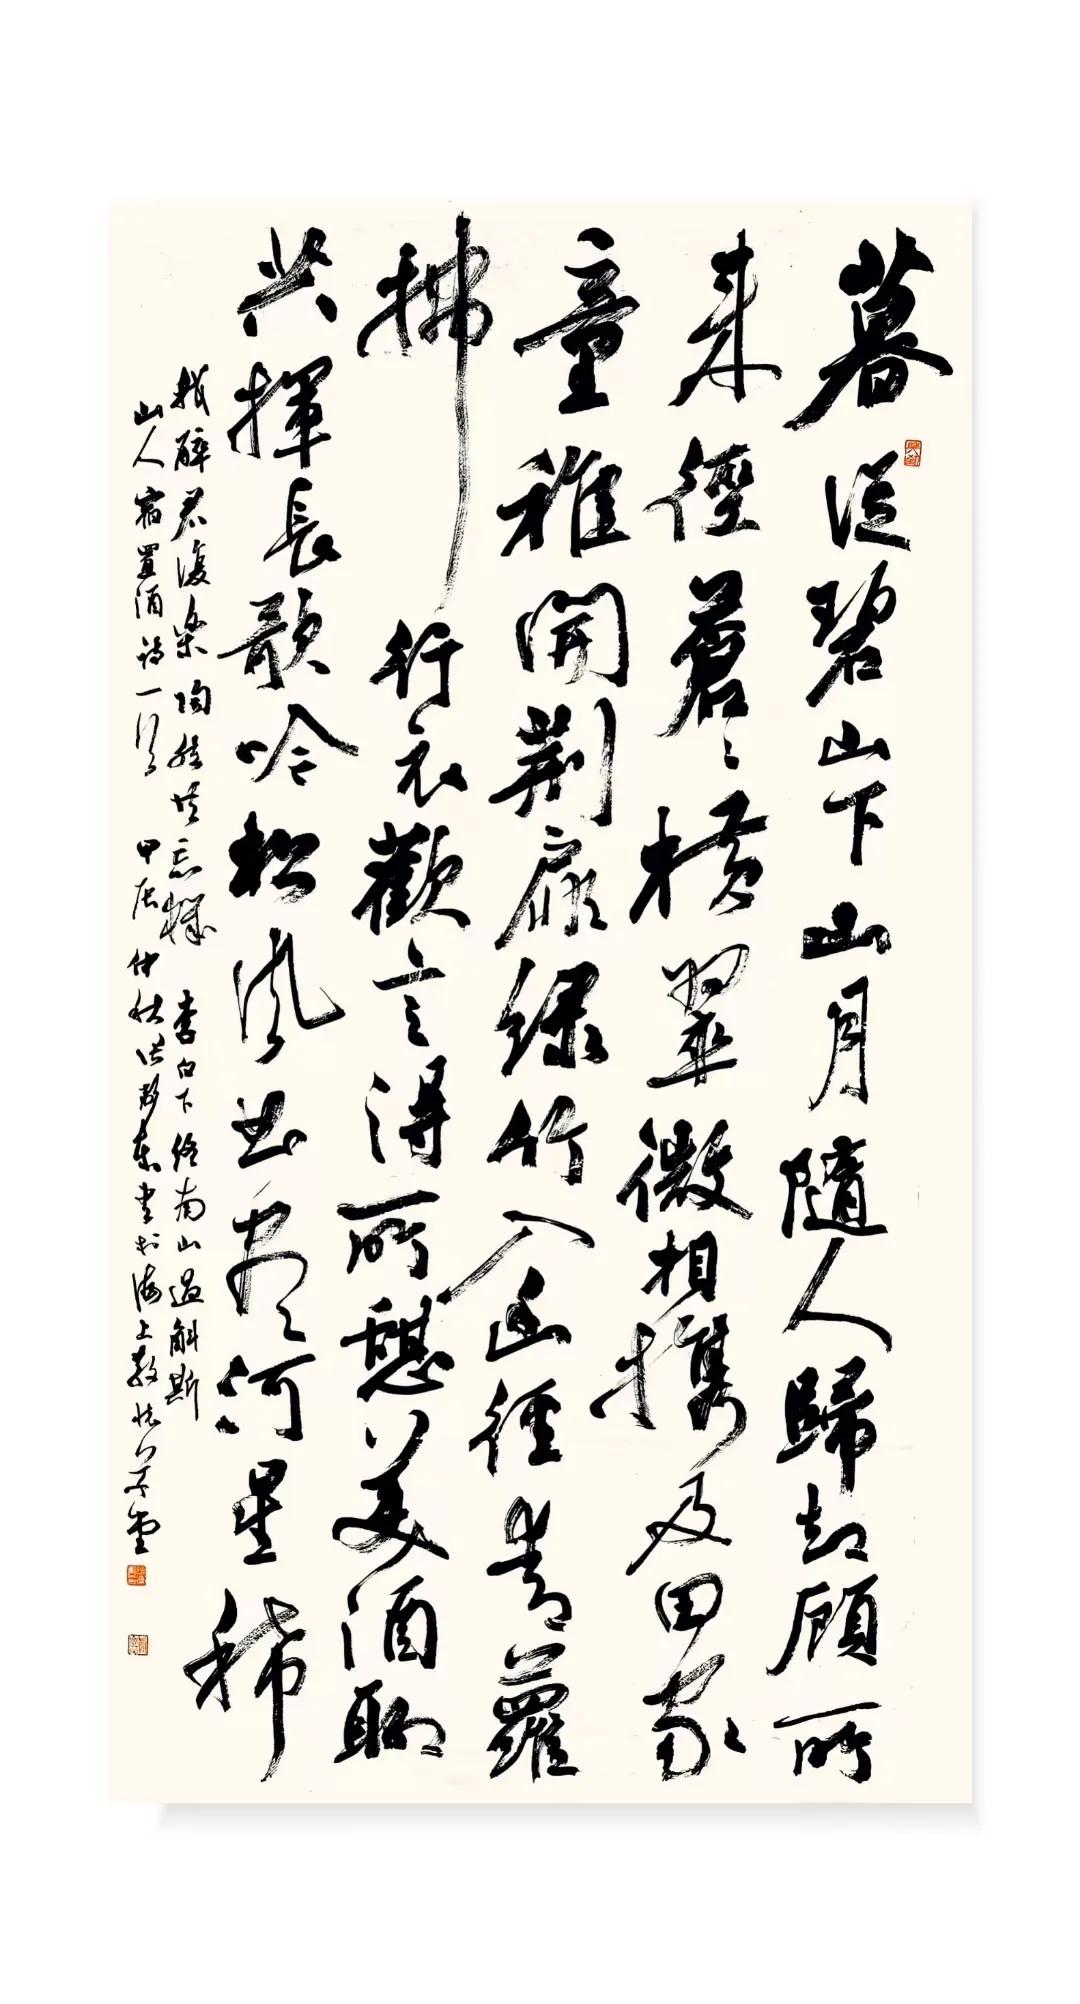 暮從碧山下山月隨人歸却顧所
來徑蒼蒼橫翠微相攜及田家
童稚開荆扉綠竹入幽徑青蘿
拂行衣歡言得所憩美酒聊
共揮長歌吟松風曲盡河星稀
我醉君復樂陶然共忘機 李白下終南山過斛斯
山人宿置酒詩一首 甲辰仲秋 書於海上 堂